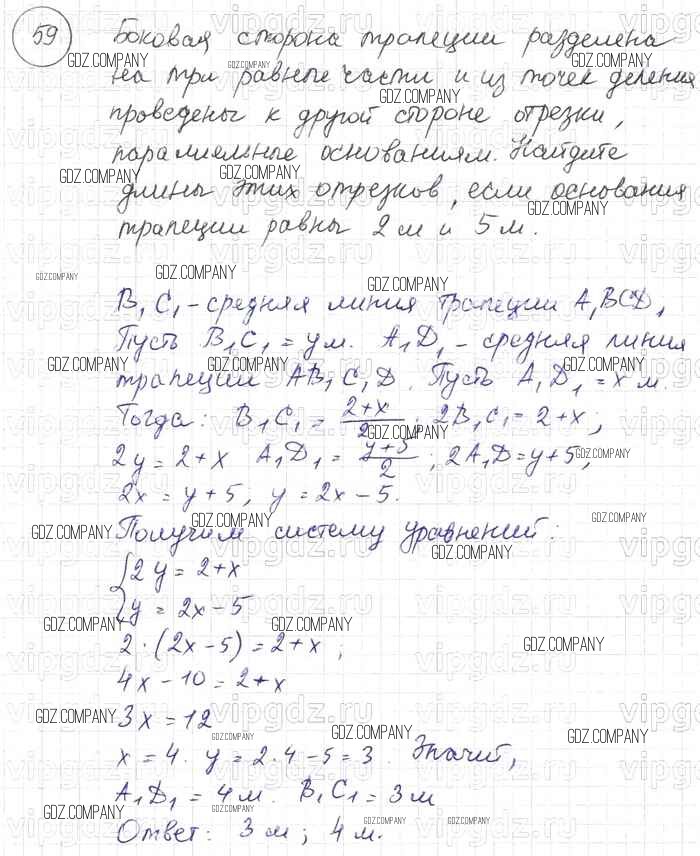 59
Боковая сторона трапеции разделена
на три равные части и из точек деления
проведены к другой стороне отрезки,
параллельные основаниям. Найдите
длины этих отрезков, если основания
трапеции равны 2 м и 5 м.
B₁C₁ - средняя линия трапеции A₁BCD₁
Пусть B₁C₁ = y м. A₁D₁ - средняя линия
трапеции AB₁C₁D. Пусть A₁D₁ = x м.
Тогда: B₁C₁ = (2+x)/2; 2B₁C₁ = 2+x;
2y = 2+x A₁D₁ = (y+5)/2; 2A₁D = y+5;
2x = y+5, y = 2x-5.
Получим систему уравнений:
{2y = 2+x
{y = 2x-5
2·(2x-5) = 2+x;
4x-10 = 2+x
3x = 12
x = 4. y = 2·4-5 = 3. Значит,
A₁D₁ = 4 м. B₁C₁ = 3 м
Ответ: 3 м; 4 м.
GDZ.COMPANY
vipgdz.ru